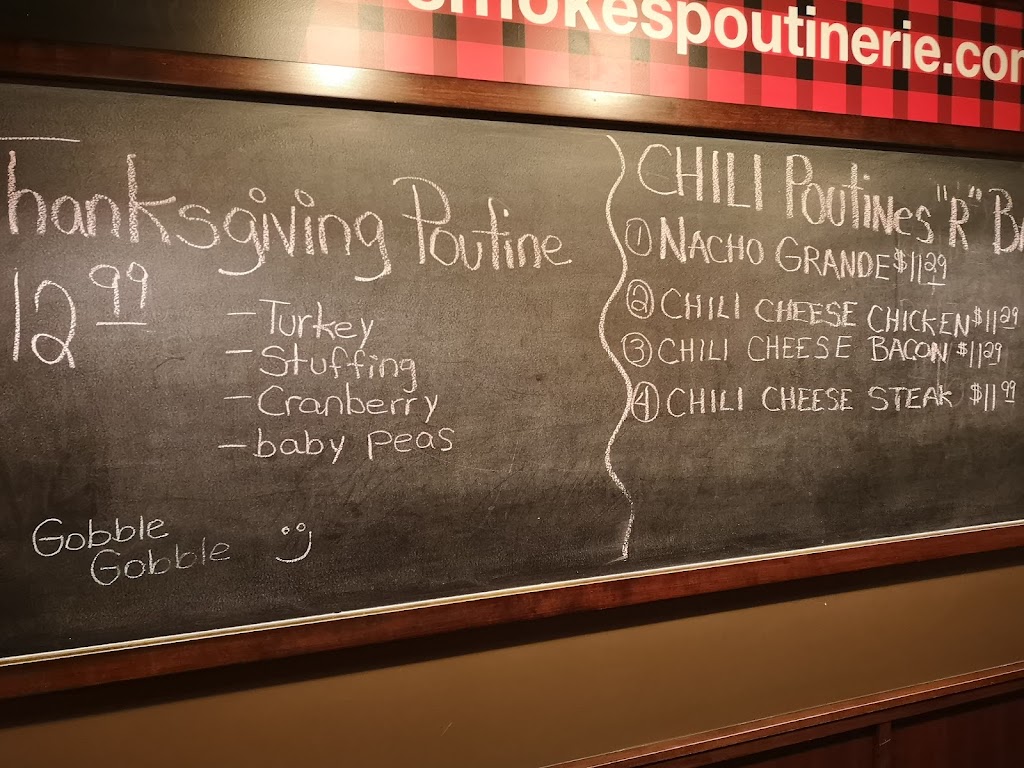 smokespoutinerie.com
Thanksgiving Poutine
12.99
- Turkey
- Stuffing
- Cranberry
- baby peas
Gobble
Gobble
CHILI Poutines "R" Ba
① NACHO GRANDE $11.29
② CHILI CHEESE CHICKEN $11.29
③ CHILI CHEESE BACON $11.29
④ CHILI CHEESE STEAK $11.99